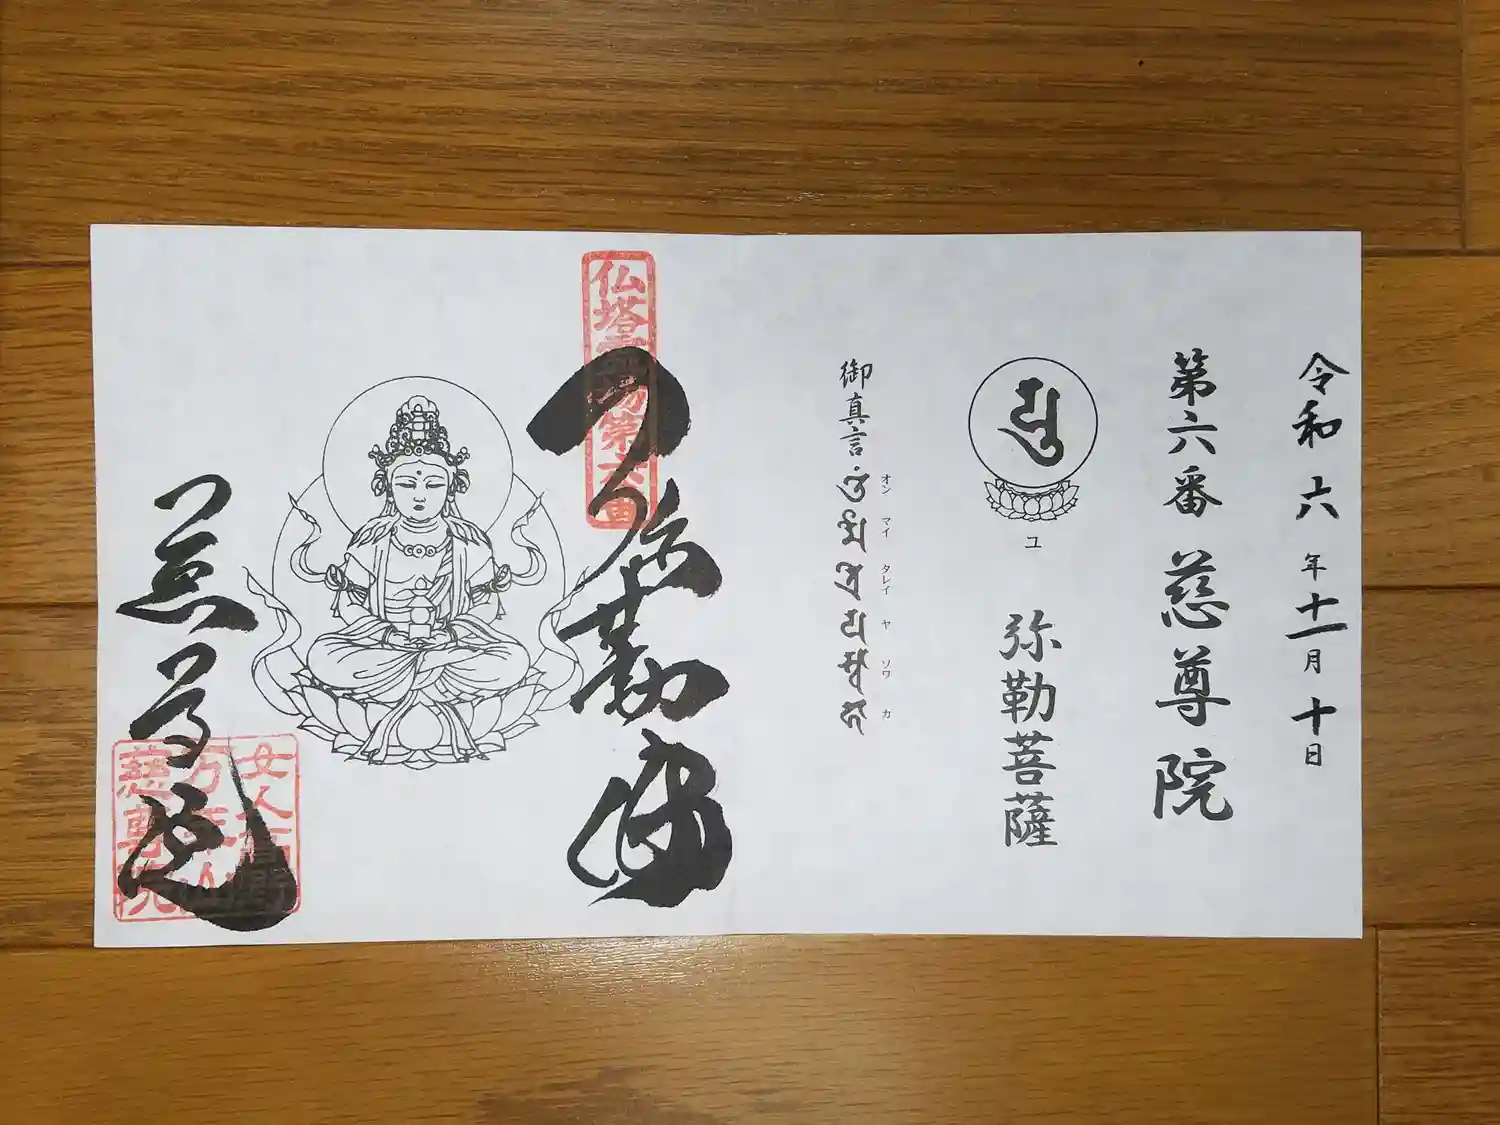 令和六年十一月十日
第六番 慈尊院
ユ
弥勒菩薩
御真言
オン マイ タレイ ヤ ソワ カ
仏塔霊場第六番
弥勒
慈尊院
女人高野
万年山
慈尊院